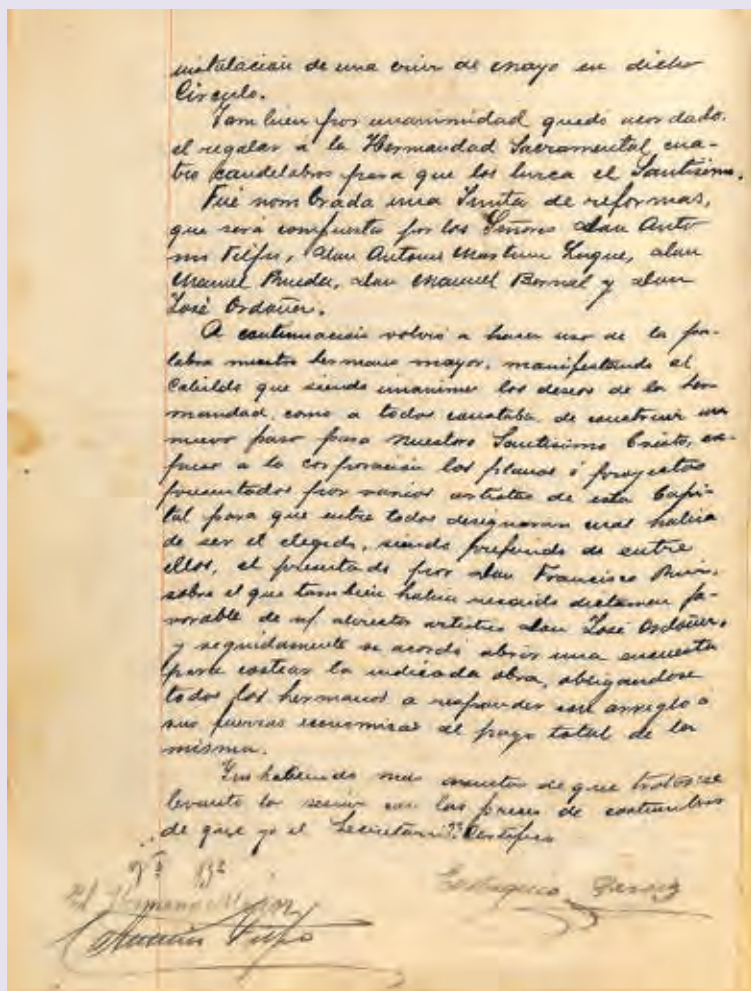 instalación de una cruz de mayo en dicho
Circulo.
Tambien por unanimidad quedó acordado,
el regalar a la Hermandad Sacramental, cua-
tro candelabros para que los luzca el Santísimo.
Fué nombrada una Junta de reformas,
que será compuesta por los Señores don Anto
nio Filpo, don Antonio Martin Luque, don
Manuel Rueda, don Manuel Bernal y don
José Ordoñez.
A continuación volvió a hacer uso de la pa-
labra nuestro hermano mayor, manifestando al
Cabildo que siendo unanimes los deseos de la her
mandad, como a todos constaba, de construir un
nuevo paso para Nuestro Santisimo Cristo, ex-
puso a la corporación los planos é proyectos
presentados por varios artistas de esta Capi-
tal para que entre todos designaran cual habia
de ser el elegido, siendo preferido de entre
ellos, el presentado por don Francisco Ruiz,
sobre el que tambien habia recaido dictamen fa-
vorable de n/ director artistico don José Ordoñez,
y seguidamente se acordó abrir una encuesta
para costear la indicada obra, obligandose
todos los hermanos a responder con arreglo a
sus fuerzas economicas al pago total de la
misma.
habiendo mas asuntos de que tratar se
levanto la sesion con las preces de costumbre
de que yo el Secretario 1º Certifico
Vº Bº
El Hermano Mayor
Antonio Filpo